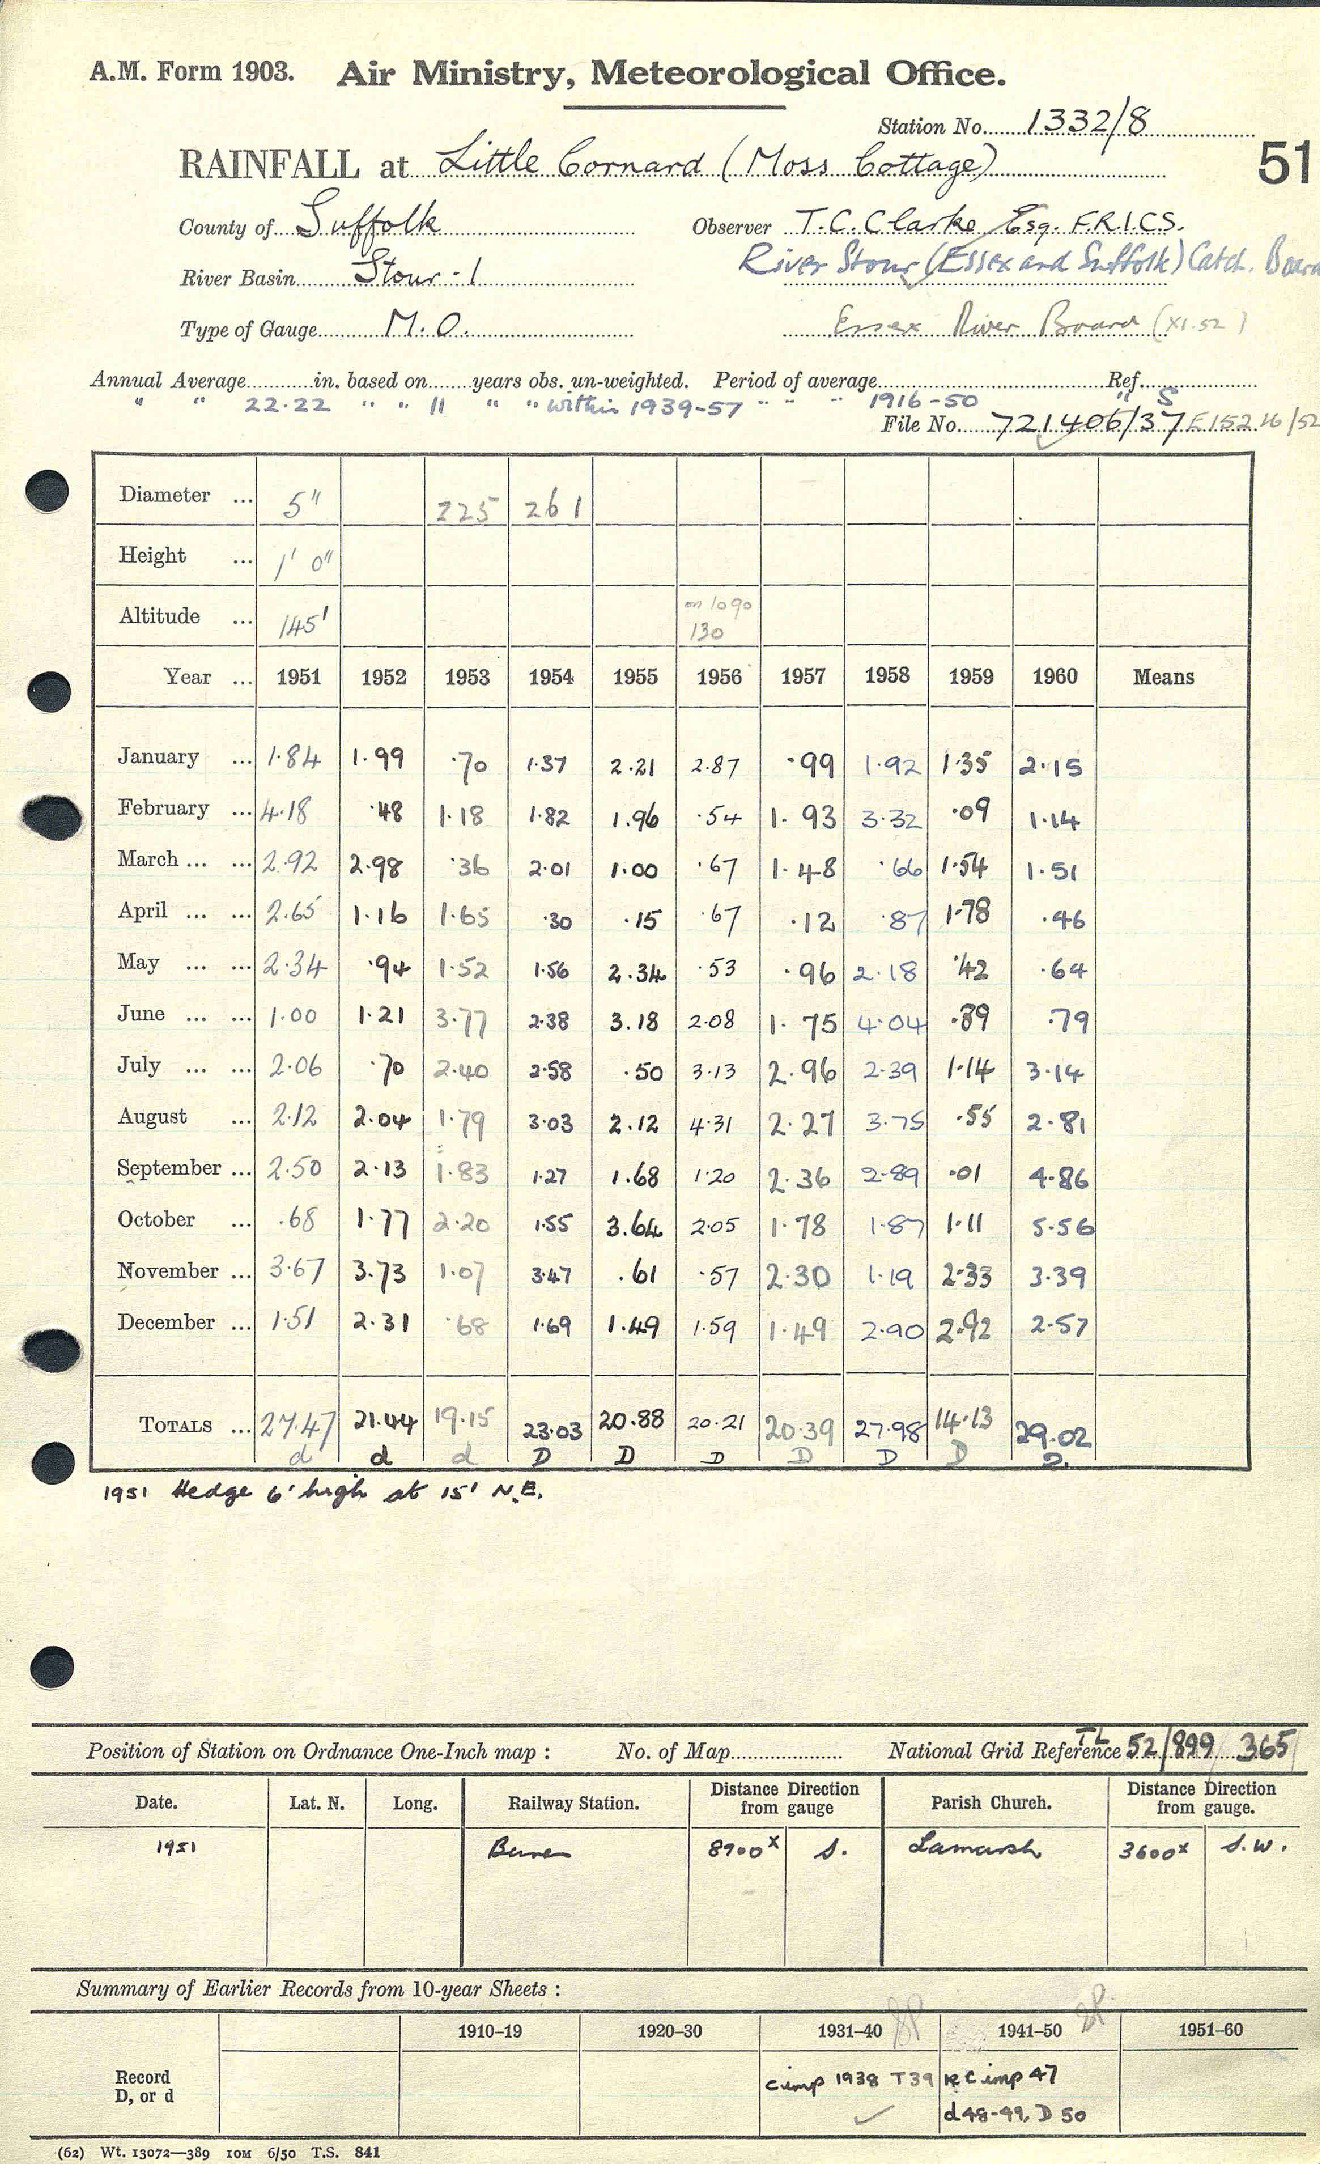 A.M. Form 1903. Air Ministry, Meteorological Office.
Station No. 1332/8
RAINFALL at Little Cornard (Moss Cottage) 51
County of Suffolk Observer T.C. Clarke Esq. F.R.I.C.S.
River Stour (Essex and Suffolk) Catch. Board
River Basin Stour-1
Type of Gauge M.O. Essex River Board (XI.52)
Annual Average in. based on years obs. un-weighted. Period of average Ref.
" " 22.22 " " 11 " " within 1939-57 " " " 1916-50 " S
File No. 721406/37 E15216/52
Diameter ... 5" 225 261
Height ... 1' 0"
Altitude ... 145' on 1090 130
Year ... 1951 1952 1953 1954 1955 1956 1957 1958 1959 1960 Means
January ... 1.84 1.99 .70 1.37 2.21 2.87 .99 1.92 1.35 2.15
February ... 4.18 .48 1.18 1.82 1.96 .54 1.93 3.32 .09 1.14
March ... ... 2.92 2.98 .36 2.01 1.00 .67 1.48 .66 1.54 1.51
April ... ... 2.65 1.16 1.65 .30 .15 .67 .12 .87 1.78 .46
May ... ... 2.34 .94 1.52 1.56 2.34 .53 .96 2.18 .42 .64
June ... ... 1.00 1.21 3.77 2.38 3.18 2.08 1.75 4.04 .89 .79
July ... ... 2.06 .70 2.40 2.58 .50 3.13 2.96 2.39 1.14 3.14
August ... 2.12 2.04 1.79 3.03 2.12 4.31 2.27 3.75 .55 2.81
September ... 2.50 2.13 1.83 1.27 1.68 1.20 2.36 2.89 .01 4.86
October ... .68 1.77 2.20 1.55 3.64 2.05 1.78 1.87 1.11 5.56
November ... 3.67 3.73 1.07 3.47 .61 .57 2.30 1.19 2.33 3.39
December ... 1.51 2.31 .68 1.69 1.49 1.59 1.49 2.90 2.92 2.57
TOTALS ... 27.47 21.44 19.15 23.03 20.88 20.21 20.39 27.98 14.13 29.02
d d d D D D D D D D.
1951 Hedge 6' high at 15' N.E.
Position of Station on Ordnance One-Inch map : No. of Map National Grid Reference TL 52/899 365
Date. Lat. N. Long. Railway Station. Distance Direction from gauge Parish Church. Distance Direction from gauge.
1951 Bures 8900x S. Lamarsh 3600x S.W.
Summary of Earlier Records from 10-year Sheets :
1910-19 1920-30 1931-40 1941-50 1951-60
Record D, or d c imp 1938 T39 RC imp 47
d 48-49, D 50
(62) Wt. 13072—389 10M 6/50 T.S. 841